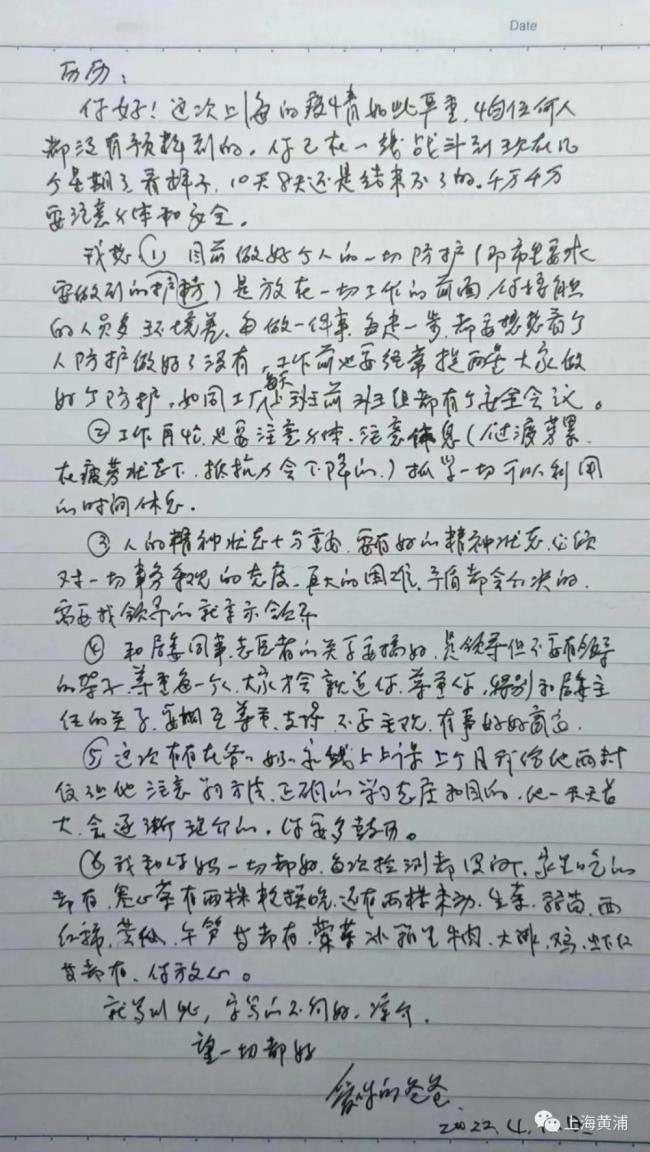 Date
历历：
你好！这次上海的疫情如此严重， 
都没有预料到的。你已在一线战斗到现在几
个星期了，看样子，10天8天还是结束不了的。千万千万
要注意身体和安全。
我想① 目前做好个人的一切防护（即 要求
要做到的防护 ）是放在一切工作的前面，你接触
的人员多环境差，每做一件事，每走一步，都要想想看个
人防护做好了没有，工作前也要经常提醒大家做
好个防护，如同工厂每天上班前班组都有个安全会议。
②工作再忙，也要注意身体，注意休息（ 疲劳
在疲劳状态下，抵抗力会下降的，）抓紧一切可以利用
的时间休息。
③人的精神状态十分重要，要有好的精神状态，必须
对一切事务乐观的态度，再大的困难、矛盾都会解决的，
需要找领导的就 领导
④和居委同事、志愿者的关系要搞好，是领导但不要有领导
的架子，尊重每一个人，大家才会 你，尊重你，特别和居委主
任的关系，要相互尊重、支持，不要主观，有事好好商量。
⑤这次 在爷爷奶奶家线上上课，上个月我给他两封
信让他注意学习方法，正确的学习态度和目的，他一天天长
大，会逐渐 的，你要多鼓励。
⑥我和你妈一切都好，每次检测都 ，家里吃的
都有，卷心菜有两株 ，还有两株未动，生菜， ，西
红柿， ，午笋 都有， 冰箱里牛肉，大排，鸡，虾仁
 都有，你放心。
就写到此，字写的不 好，谅介。
望一切都好
爱你的爸爸
2022.4.
上海黄浦